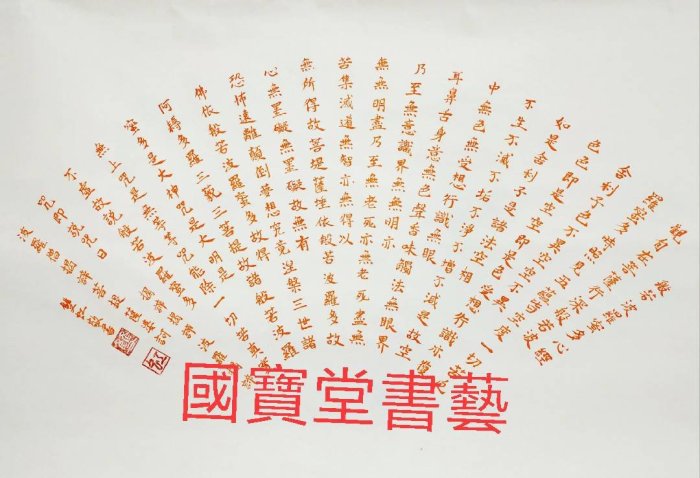 般若波羅蜜多心經
觀自在菩薩行深般若波
羅蜜多時照見五蘊皆空度一切
舍利子色不異空空不異
色色即是空空即是色受想行識亦復
如是舍利子是諸法空相
不生不滅不垢不淨不增不減是故空
中無色無受想行識無眼
耳鼻舌身意無色聲香味觸法無眼界
乃至無意識界無無明亦
無無明盡乃至無老死亦無老死盡無
苦集滅道無智亦無得以
無所得故菩提薩埵依般若波羅多故
心無罣礙無罣礙故無有
恐怖遠離顛倒夢想究竟涅槃三世諸
佛依般若波羅蜜多故得
阿耨多羅三藐三菩提故知般若波羅
蜜多是大神咒是大明咒是
無上咒是無等等咒能除一切苦真實
不虛故說般若波羅蜜多
咒即說咒曰揭諦揭諦波羅揭諦
波羅僧揭諦菩提薩婆訶
國寶堂書藝